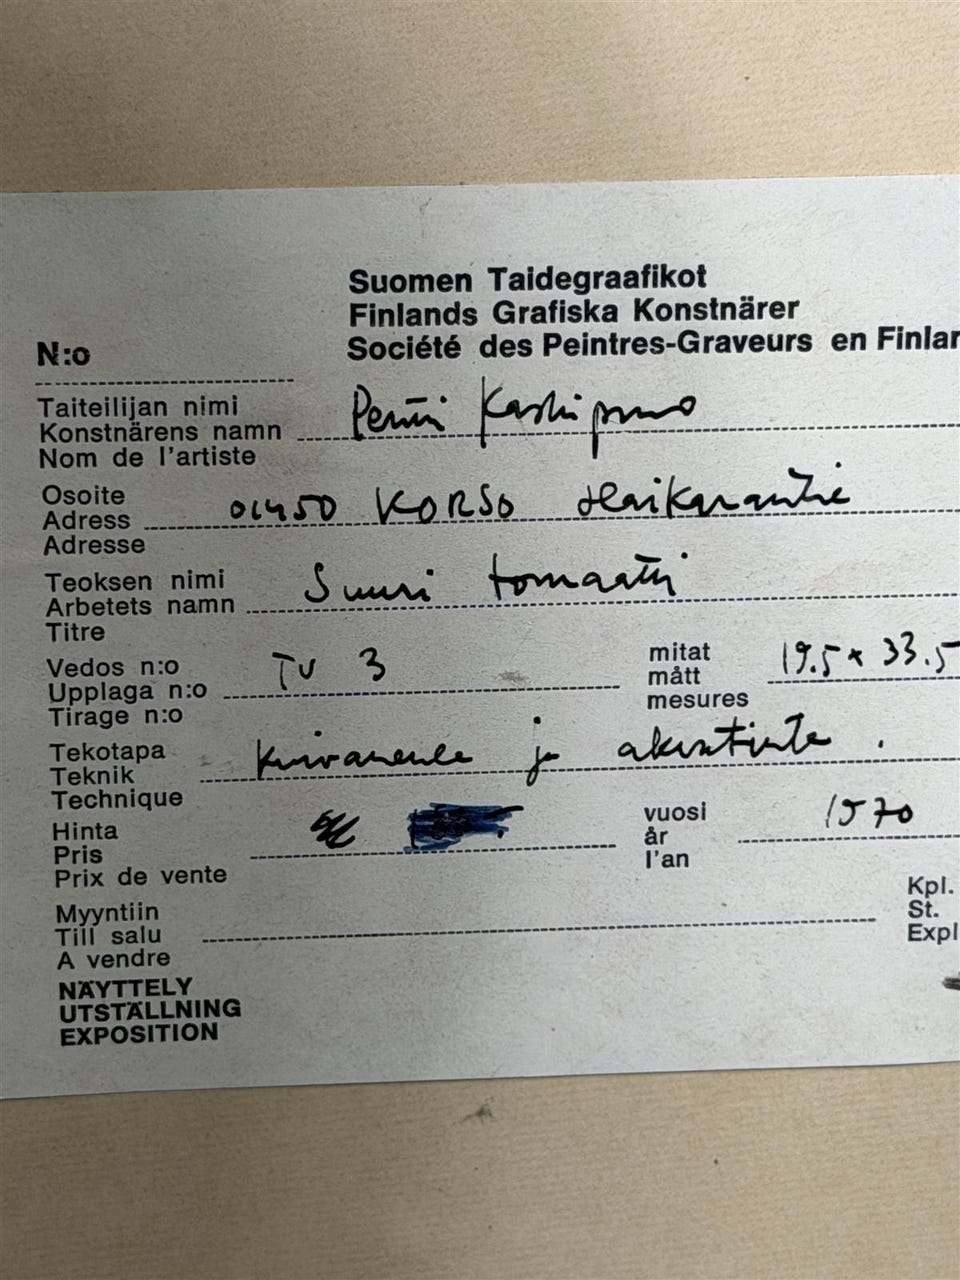 Suomen Taidegraafikot
Finlands Grafiska Konstnärer
N:o Société des Peintres-Graveurs en Finlan
Taiteilijan nimi
Konstnärens namn Pentti Kaskipuro
Nom de l'artiste
Osoite
Adress 01450 KORSO Haikarantie
Adresse
Teoksen nimi
Arbetets namn Suuri tomaatti
Titre
Vedos n:o
Upplaga n:o TV 3
Tirage n:o
mitat
mått 19.5 x 33.5
mesures
Tekotapa
Teknik kuivaneula ja akvatinta .
Technique
Hinta
Pris
Prix de vente
vuosi
år 1970
l'an
Myyntiin
Till salu
A vendre
Kpl.
St.
Expl
NÄYTTELY
UTSTÄLLNING
EXPOSITION